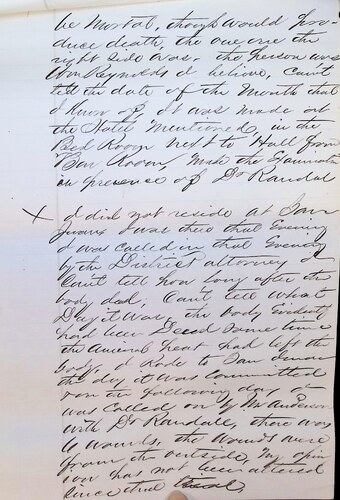 be Mortal, though would pro-
duce death, the one over the
right side was. the person was
Wm Reynolds I believe, can't
tell the date of the Month that
I know of it was made at
the Hotel Mentioned, in the
Bed Room next to Hall from
Bar Room, Made the Examination
in presence of Dr Randal
X I did not reside at San
Juan I was there that Evening
I was called in that Evening
by the District attorney I
Can't tell how long after the
body dead, Can't tell what
Day it was, the body Evidently
had been Dead some time
the animal heat had left the
body, I Rode to San Juan
the day it was committed
or on the following day I
was called on by Mr Anderson
with Dr Randall, there was
wounds, the wounds were
from the outside, My opin
ion has not been altered
since that